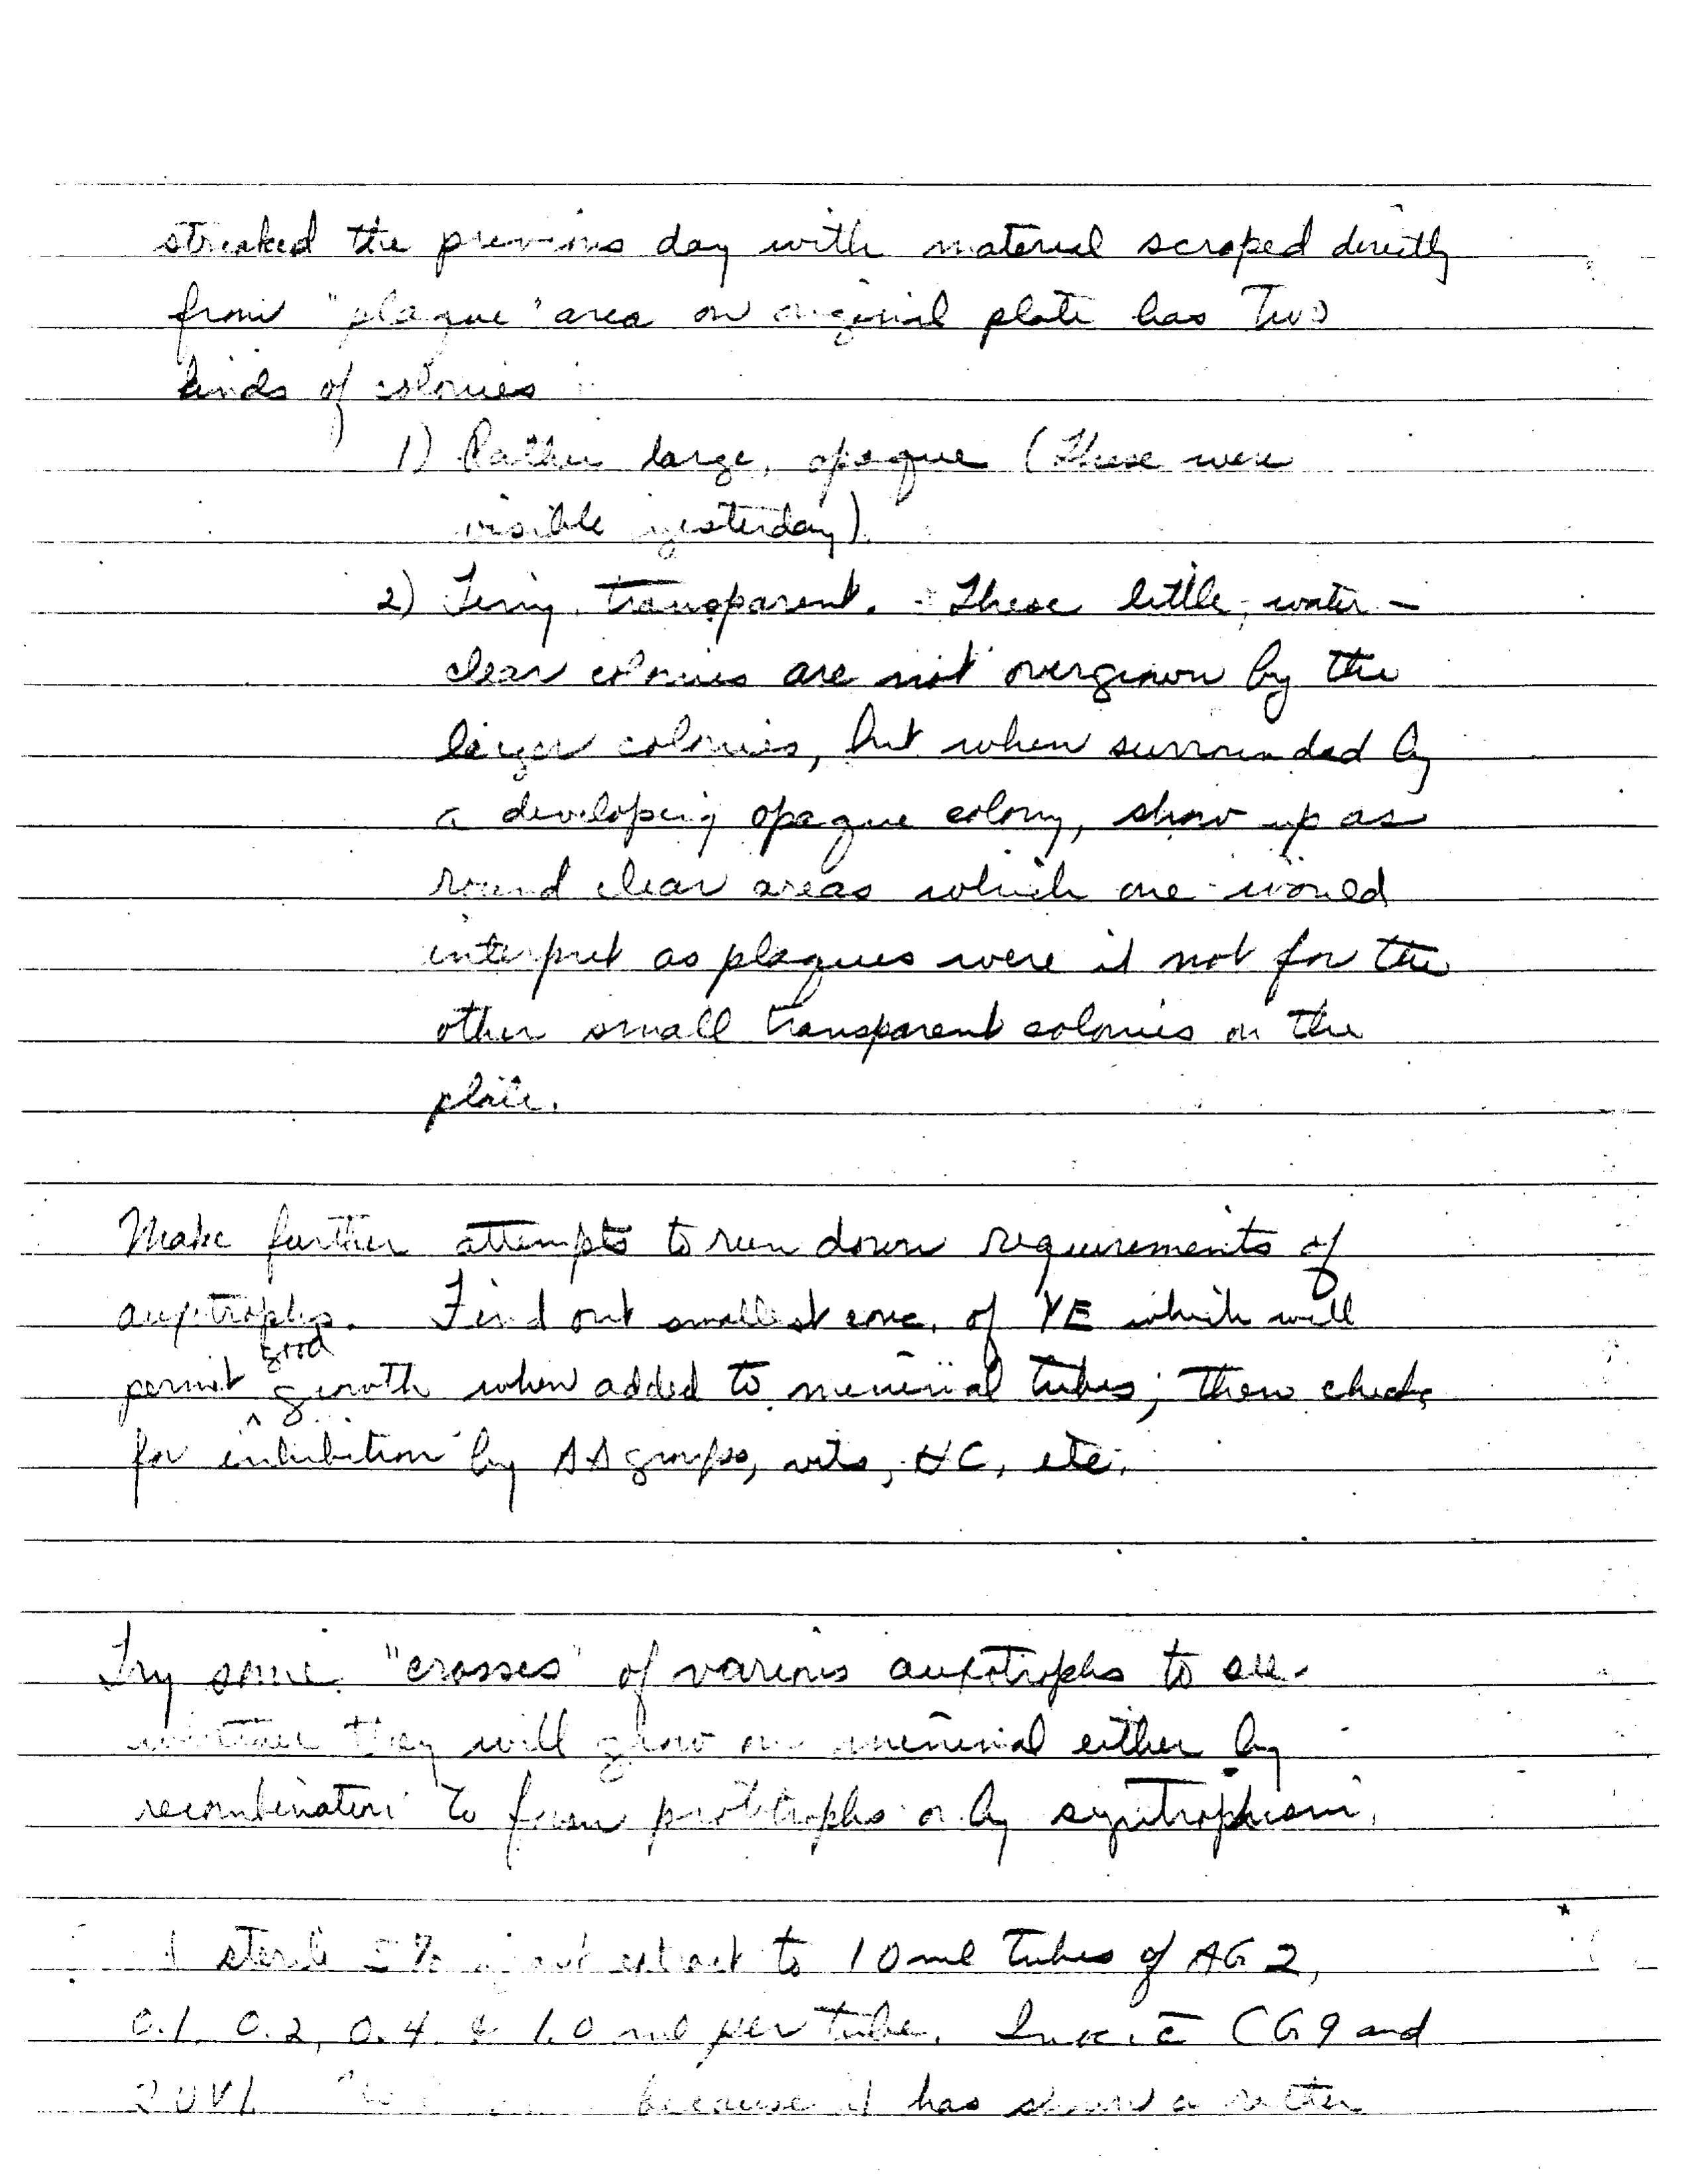 streaked the previous day with material scraped directly
from "plaque" area on original plate has two
kinds of colonies
1) Rather large, opaque (These were
visible yesterday).
2) Tiny transparent. These little, water-
clear colonies are not overgrown by the
larger colonies, but when surrounded by
a developing opaque colony, show up as
round clear areas which one would
interpret as plaques were it not for the
other small transparent colonies on the
plate.
Make further attempts to run down requirements of
auxotrophs. Find out smallest conc. of YE which will
good
permit ^ growth when added to minimal tubes; then check
for inhibition by AA groups, vits, HC, etc.
Try some "crosses" of various auxotrophs to see
whether they will grow on minimal either by
recombination to form prototrophs or by syntrophism.
sterile 5% extract to 10 ml tubes of AG2,
0.1, 0.2, 0.4 & 1.0 ml per tube. Inoc. c̄ CG9 and
20V1 because it has shown a rather